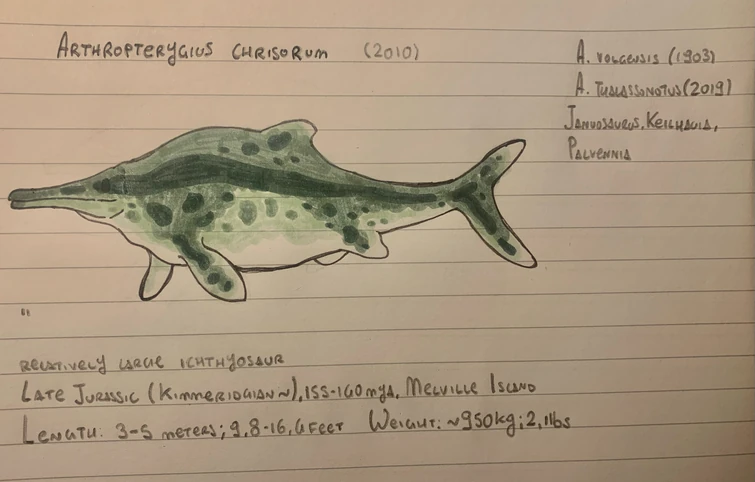 ARTHROPTERYGIUS CHRISORUM (2010)
A. VOLGENSIS (1903)
A. THALASSONOTUS (2019)
JANUOSAURUS, KEILHAUIA,
PALVENNIA
RELATIVELY LARGE ICHTHYOSAUR
LATE JURASSIC (KIMMERIDGIAN~), 155-160 mya, MELVILLE ISLAND
LENGTH: 3-5 meters; 9,8-16,4 FEET WEIGHT: ~950kg; 2,1lbs